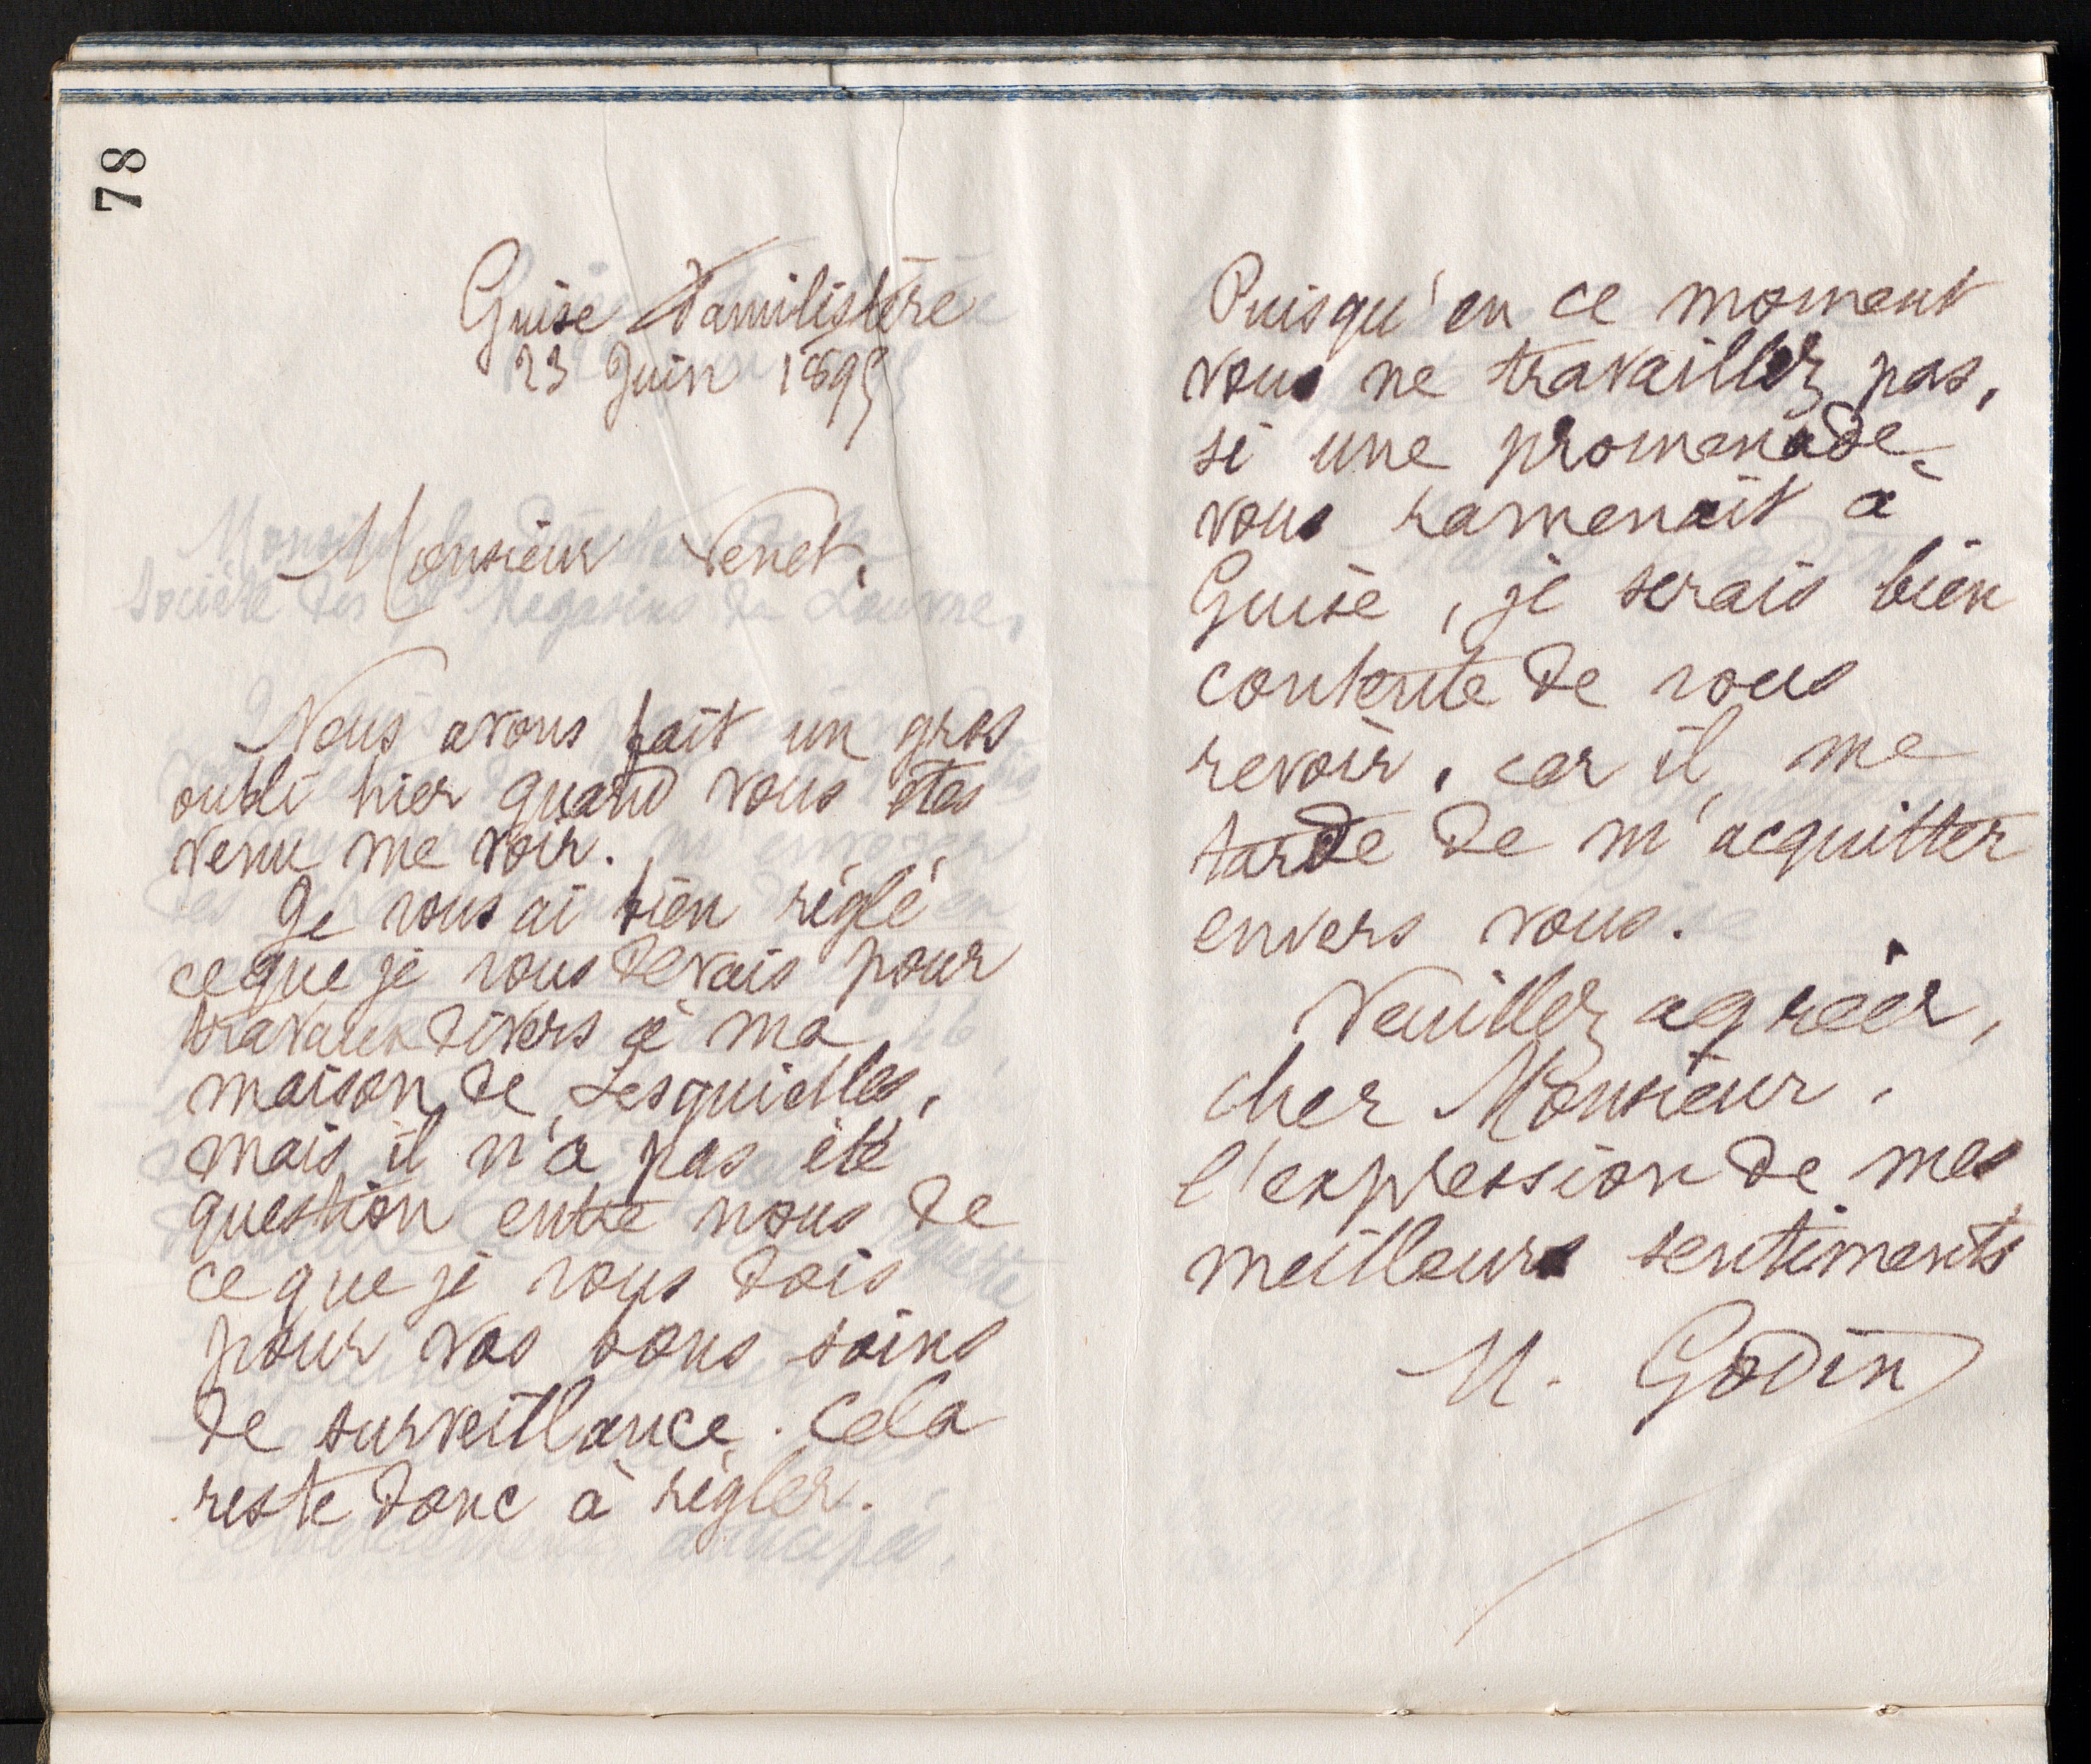 78
Guise Familistère
23 Juin 1895
Monsieur Venet,
Nous avons fait un gros
oubli hier quand vous êtes
venu me voir.
Je vous ai bien réglé
ce que je vous devais pour
travaux divers à ma
maison de Lesquielles,
mais il n'a pas été
question entre nous de
ce que je vous dois
pour vos bons soins
de surveillance. Cela
reste donc à régler.
Puisqu'en ce moment
vous ne travaillez pas,
si une promenade
vous ramenait à
Guise, je serais bien
contente de vous
revoir, car il me
tarde de m'acquitter
envers vous.
Veuillez agréer,
cher Monsieur,
l'expression de mes
meilleurs sentiments
M. Godin